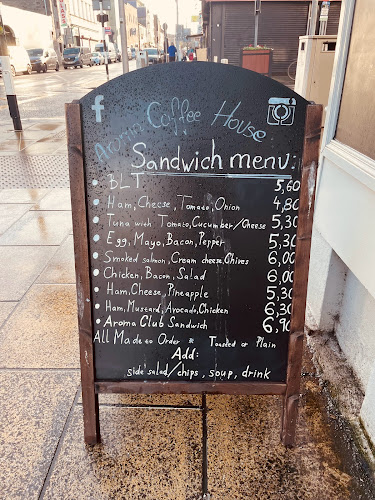 f
Aroma Coffee House
Sandwich menu:
BLT 5,60
Ham, Cheese, Tomato, Onion 4,80
Tuna with Tomato, Cucumber/Cheese 5,30
Egg, Mayo, Bacon, Pepper 5,30
Smoked salmon, Cream cheese, Chives 6,00
Chicken, Bacon, Salad 6,00
Ham, Cheese, Pineapple 5,30
Ham, Mustard, Avocado, Chicken 6,30
Aroma Club Sandwich 6,90
All Made to Order * Toasted or Plain
Add:
side salad/chips, soup, drink